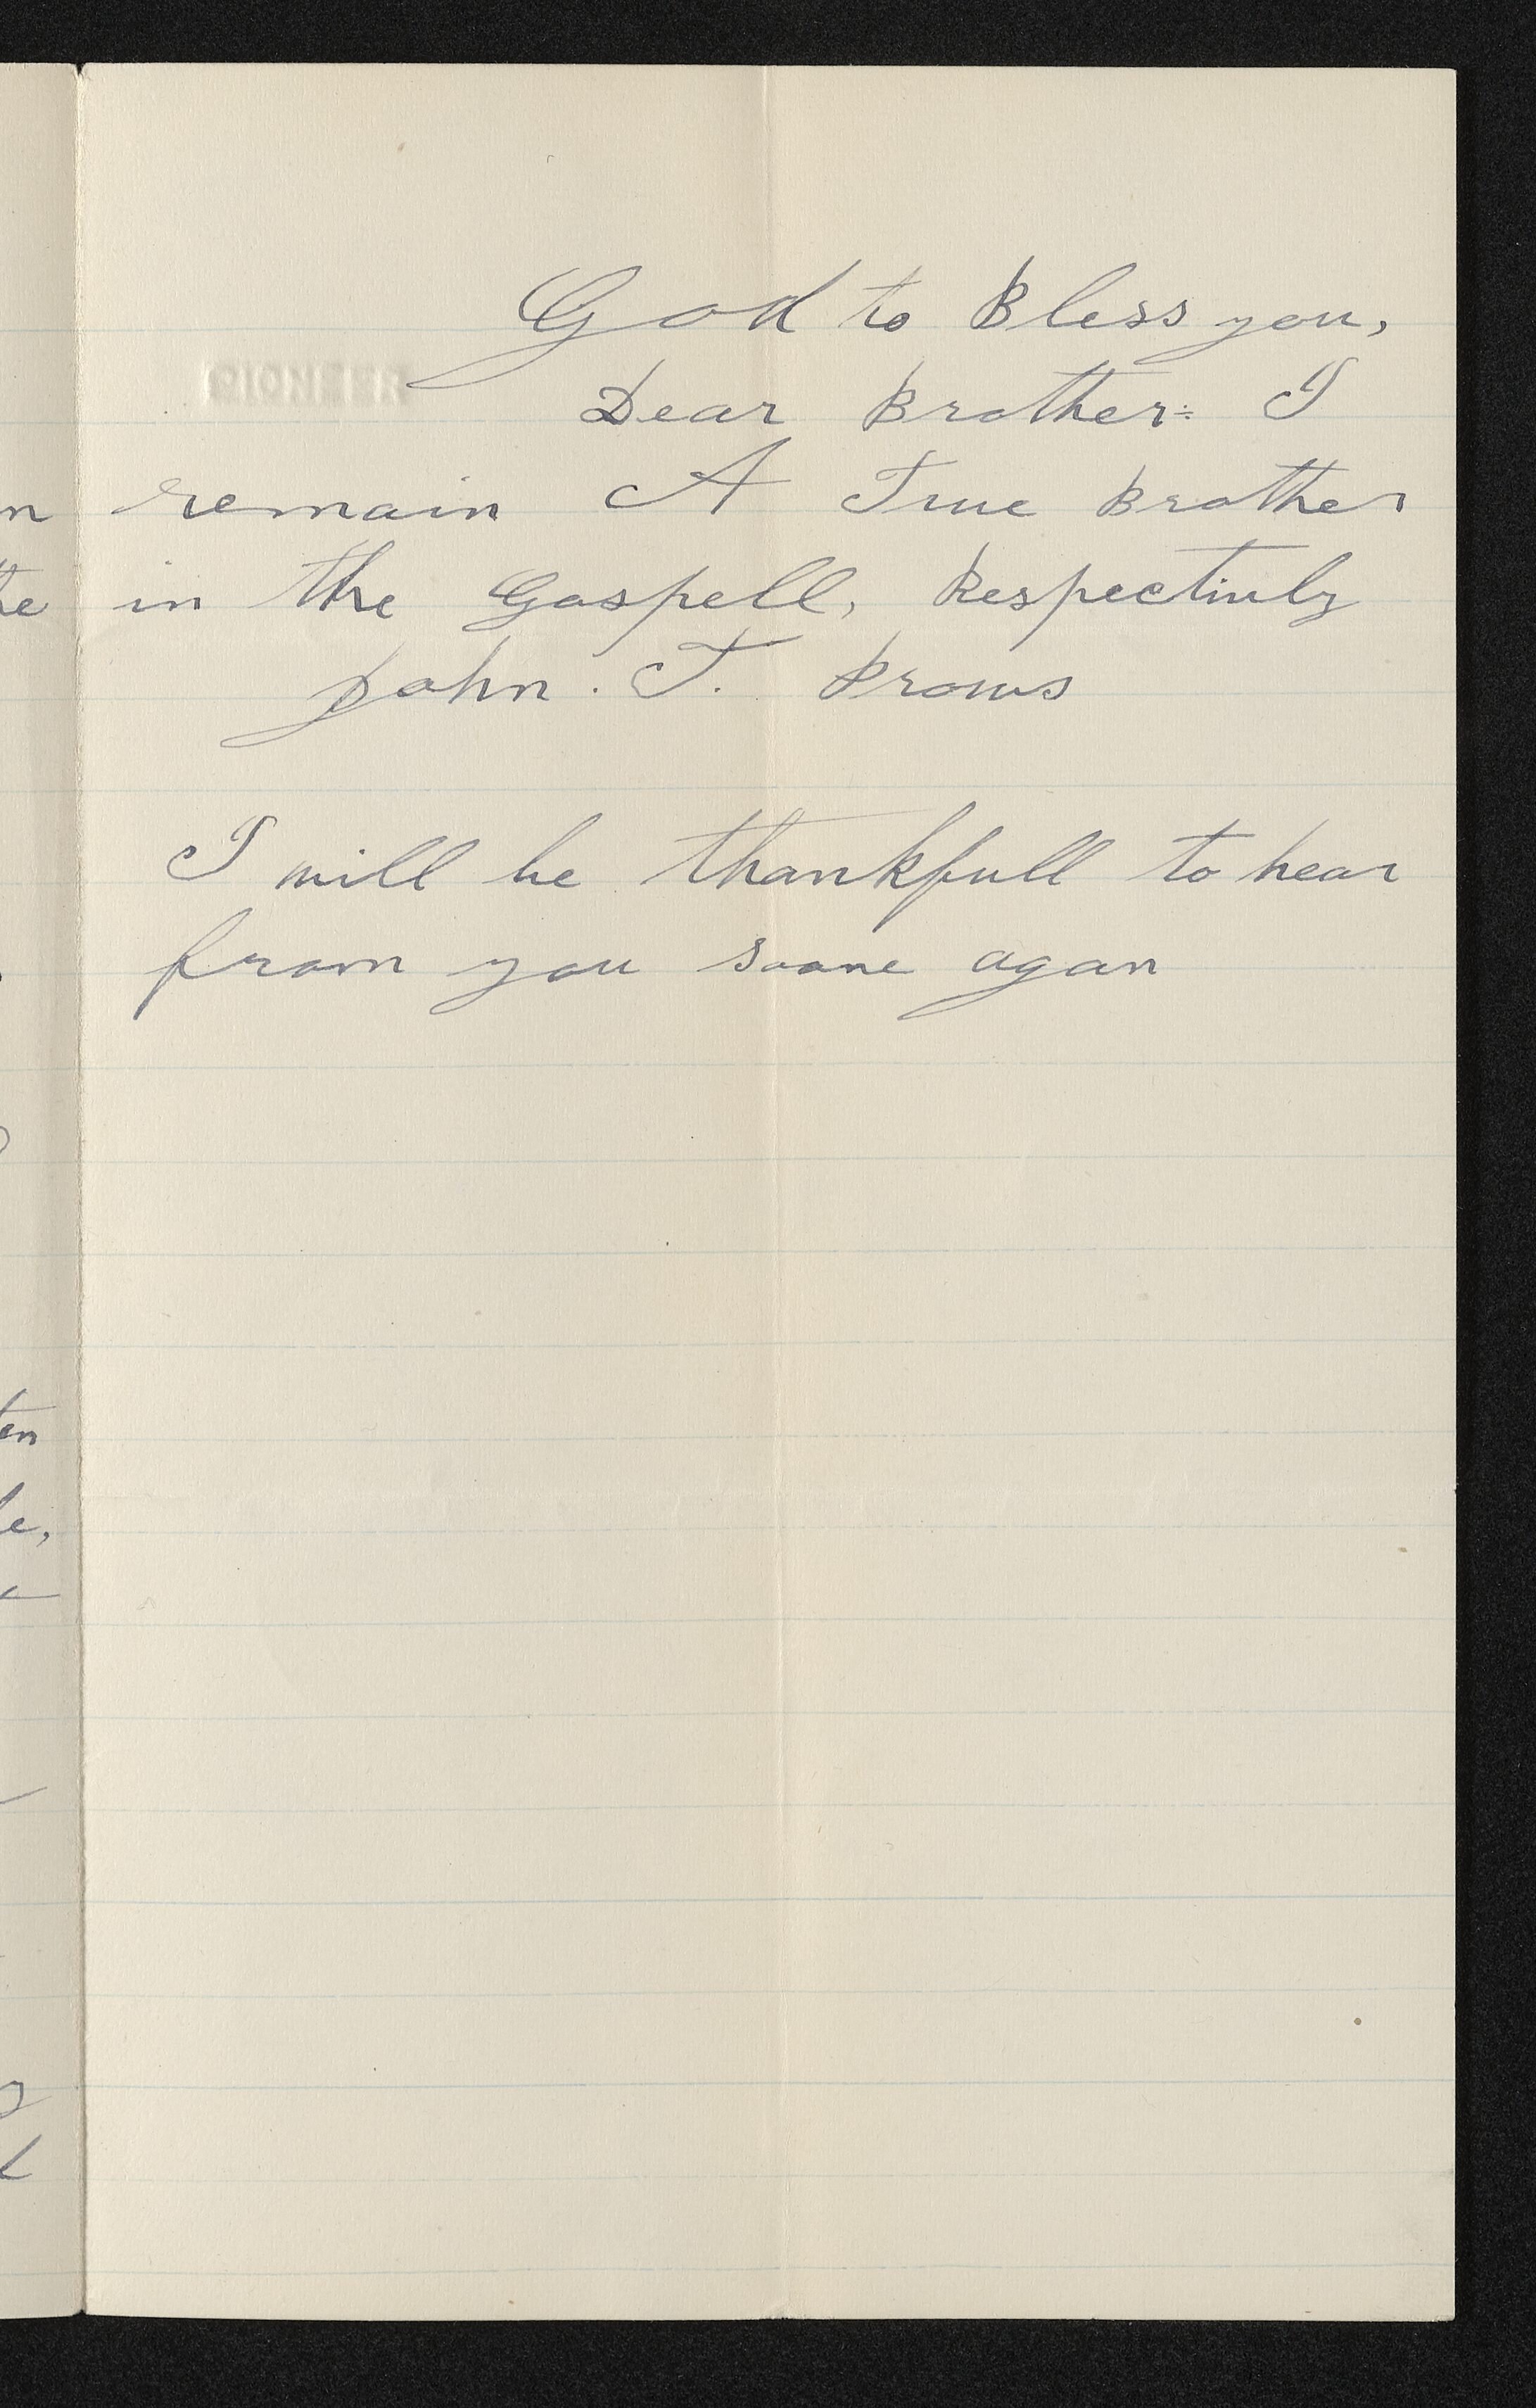 God to Bless you,
Dear Brother: I
remain A True Brother
in the Gospell, Respectiuly
John. T. Prows
I will be thankfull to hear
from you soone agan